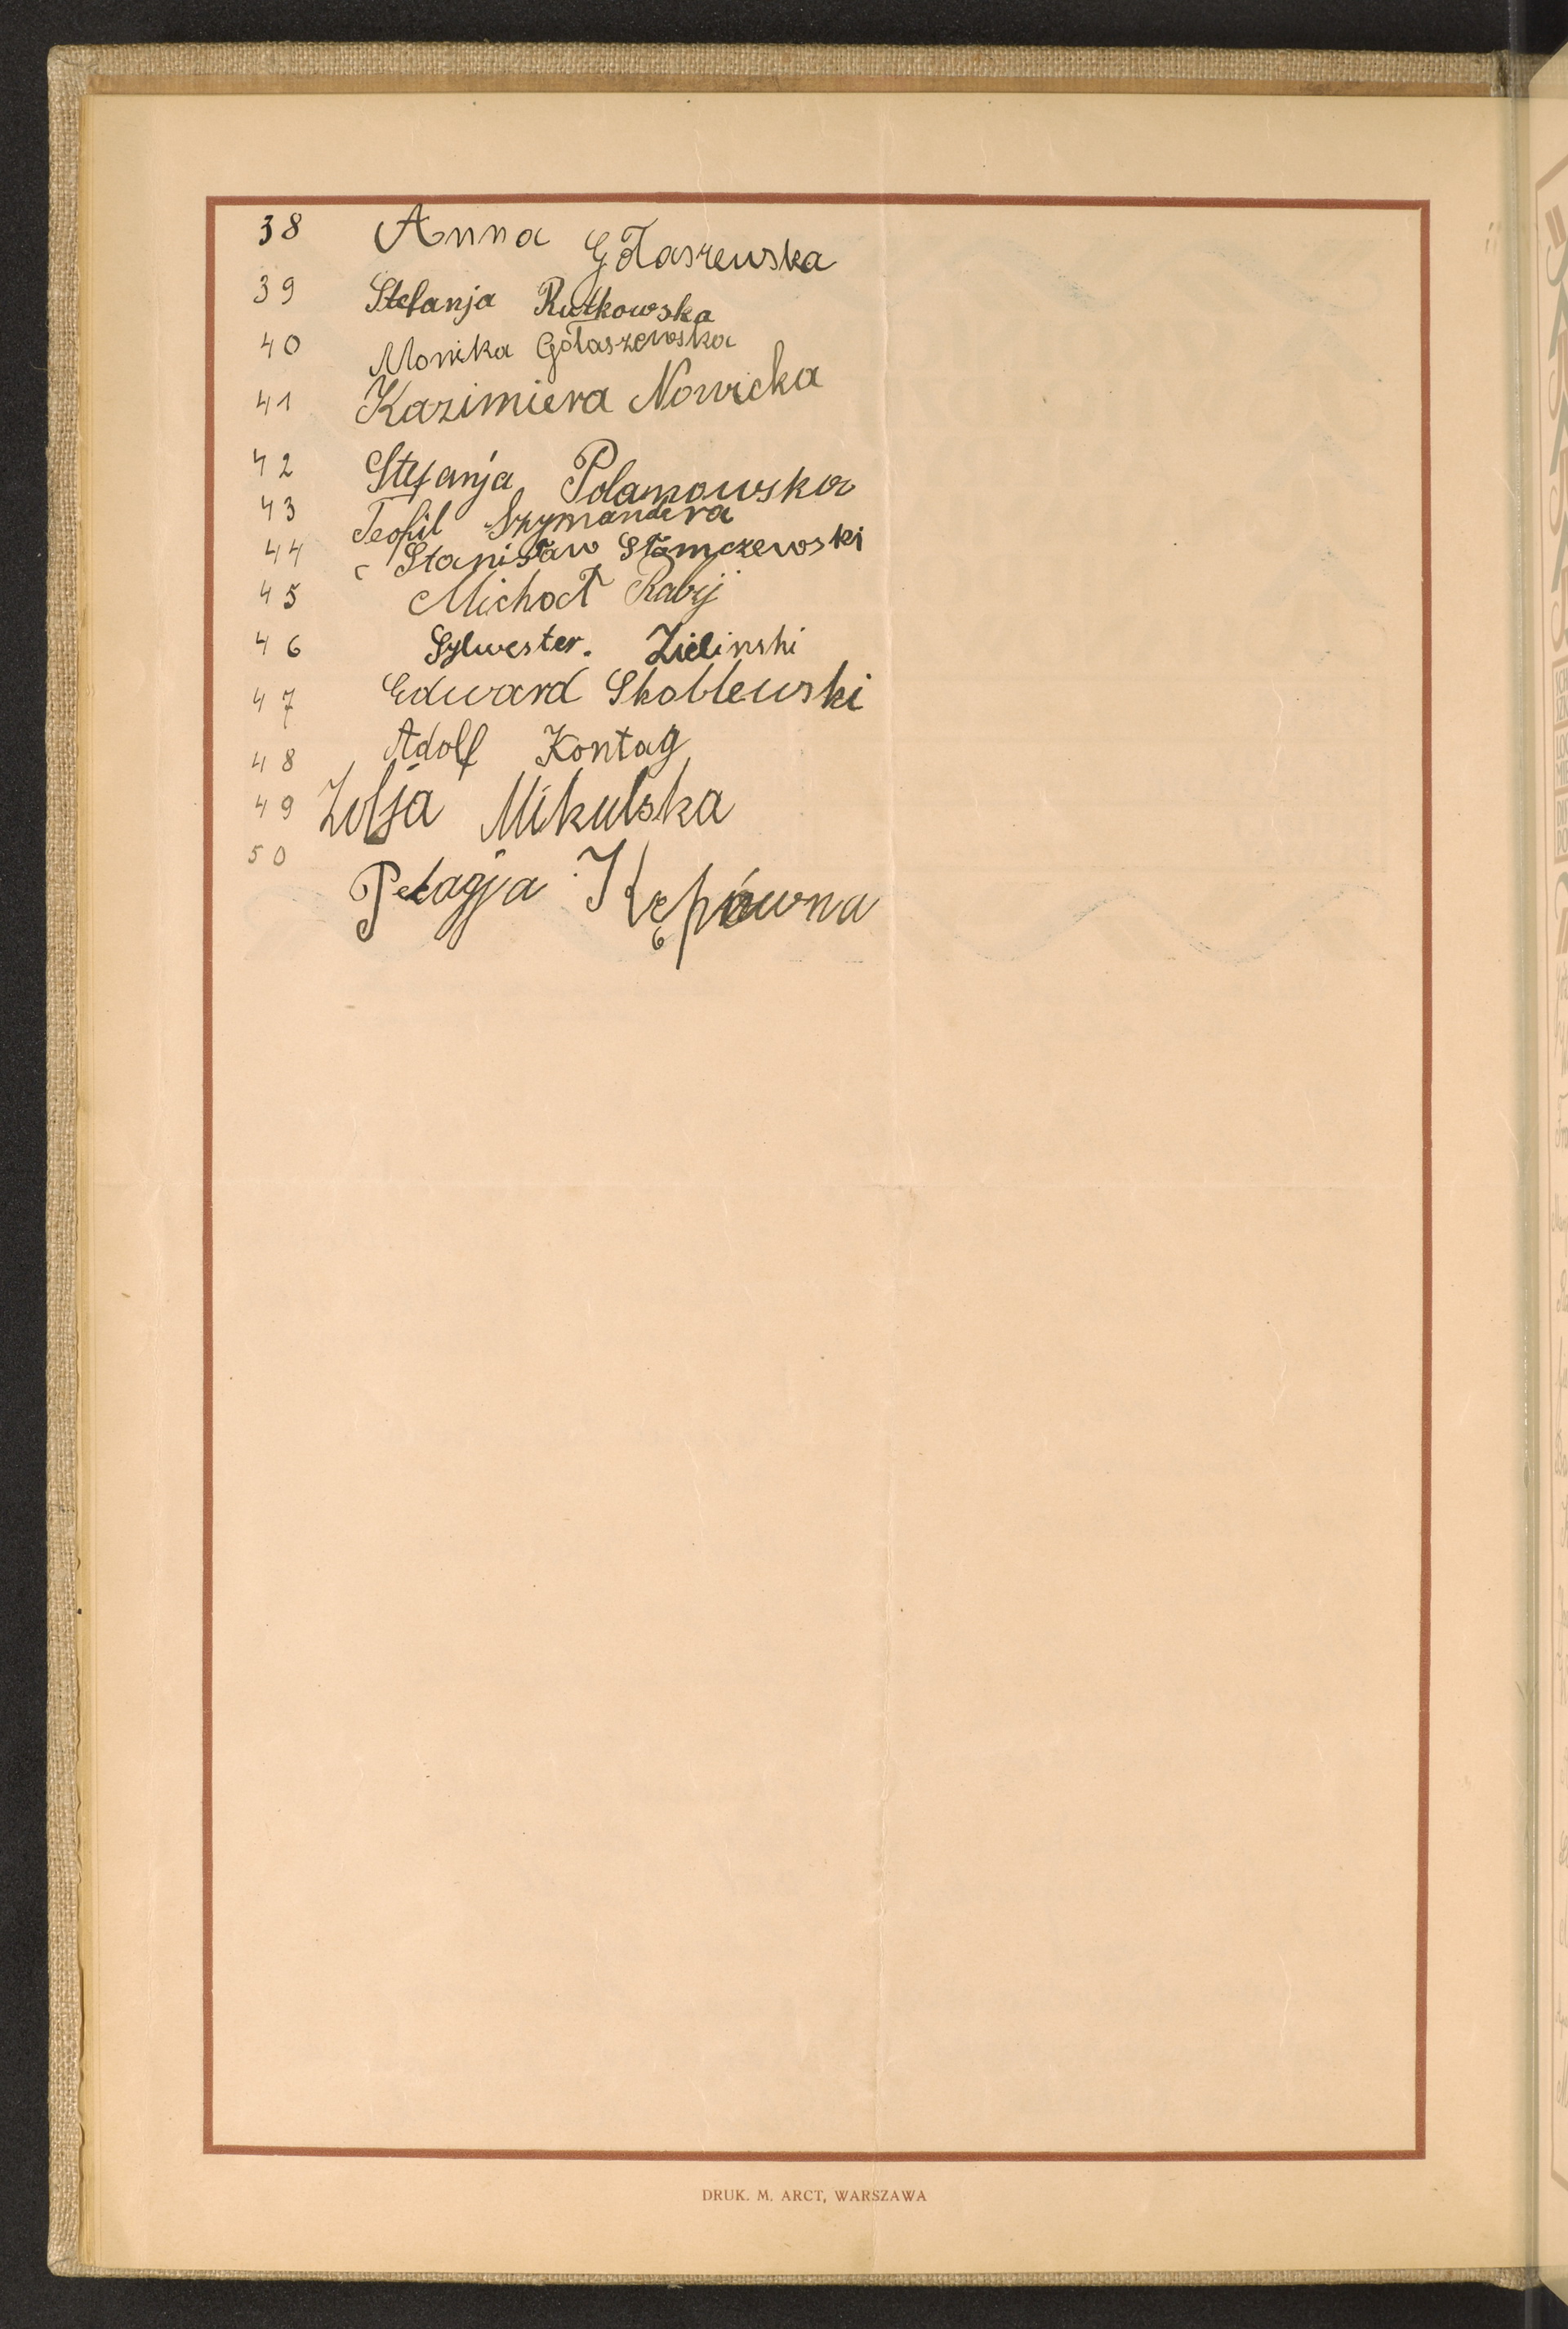 38 Anna Gołaszewska
39 Stefanja Rutkowska
40 Monika Gołaszewska
41 Kazimiera Nowicka
42 Stefanja Polamowska
43 Teofil Szymandera
44 Stanisław Słomczewski
45 Michał Rabij
46 Sylwester. Zielinski
47 Edward Skoblewski
48 Adolf Kontag
49 Zofja Mikulska
50 Pelagja Kępówna
DRUK. M. ARCT, WARSZAWA